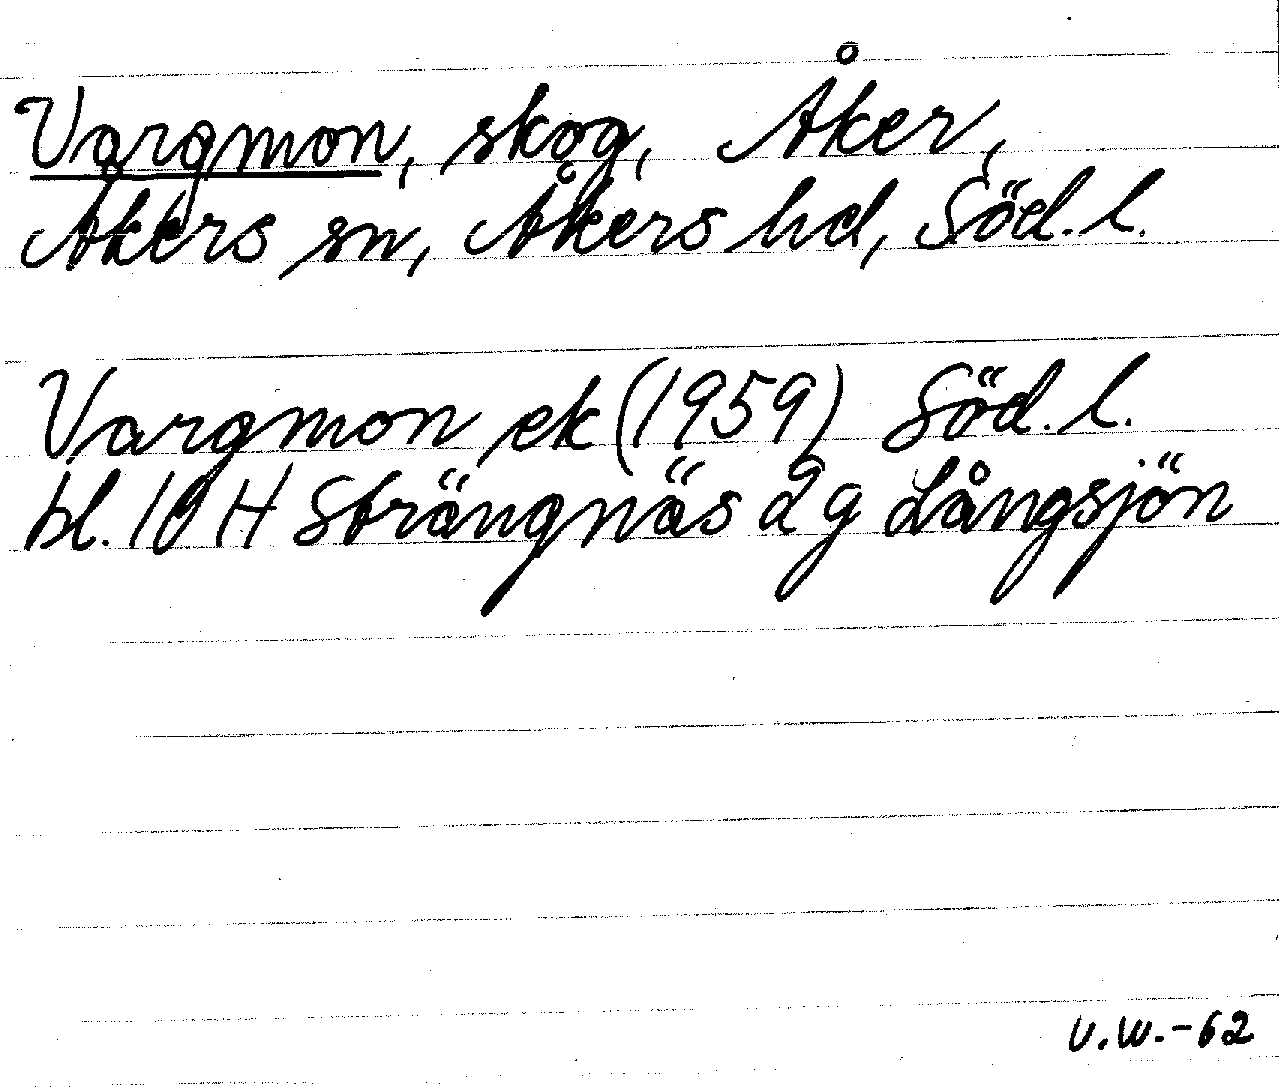 Vargmon, skog, Åker,
Åkers sn, Åkers hd, Söd. l.
Vargmon ek (1959) Söd. l.
bl. 10 H Strängnäs 2 g Långsjön
U.W.-62